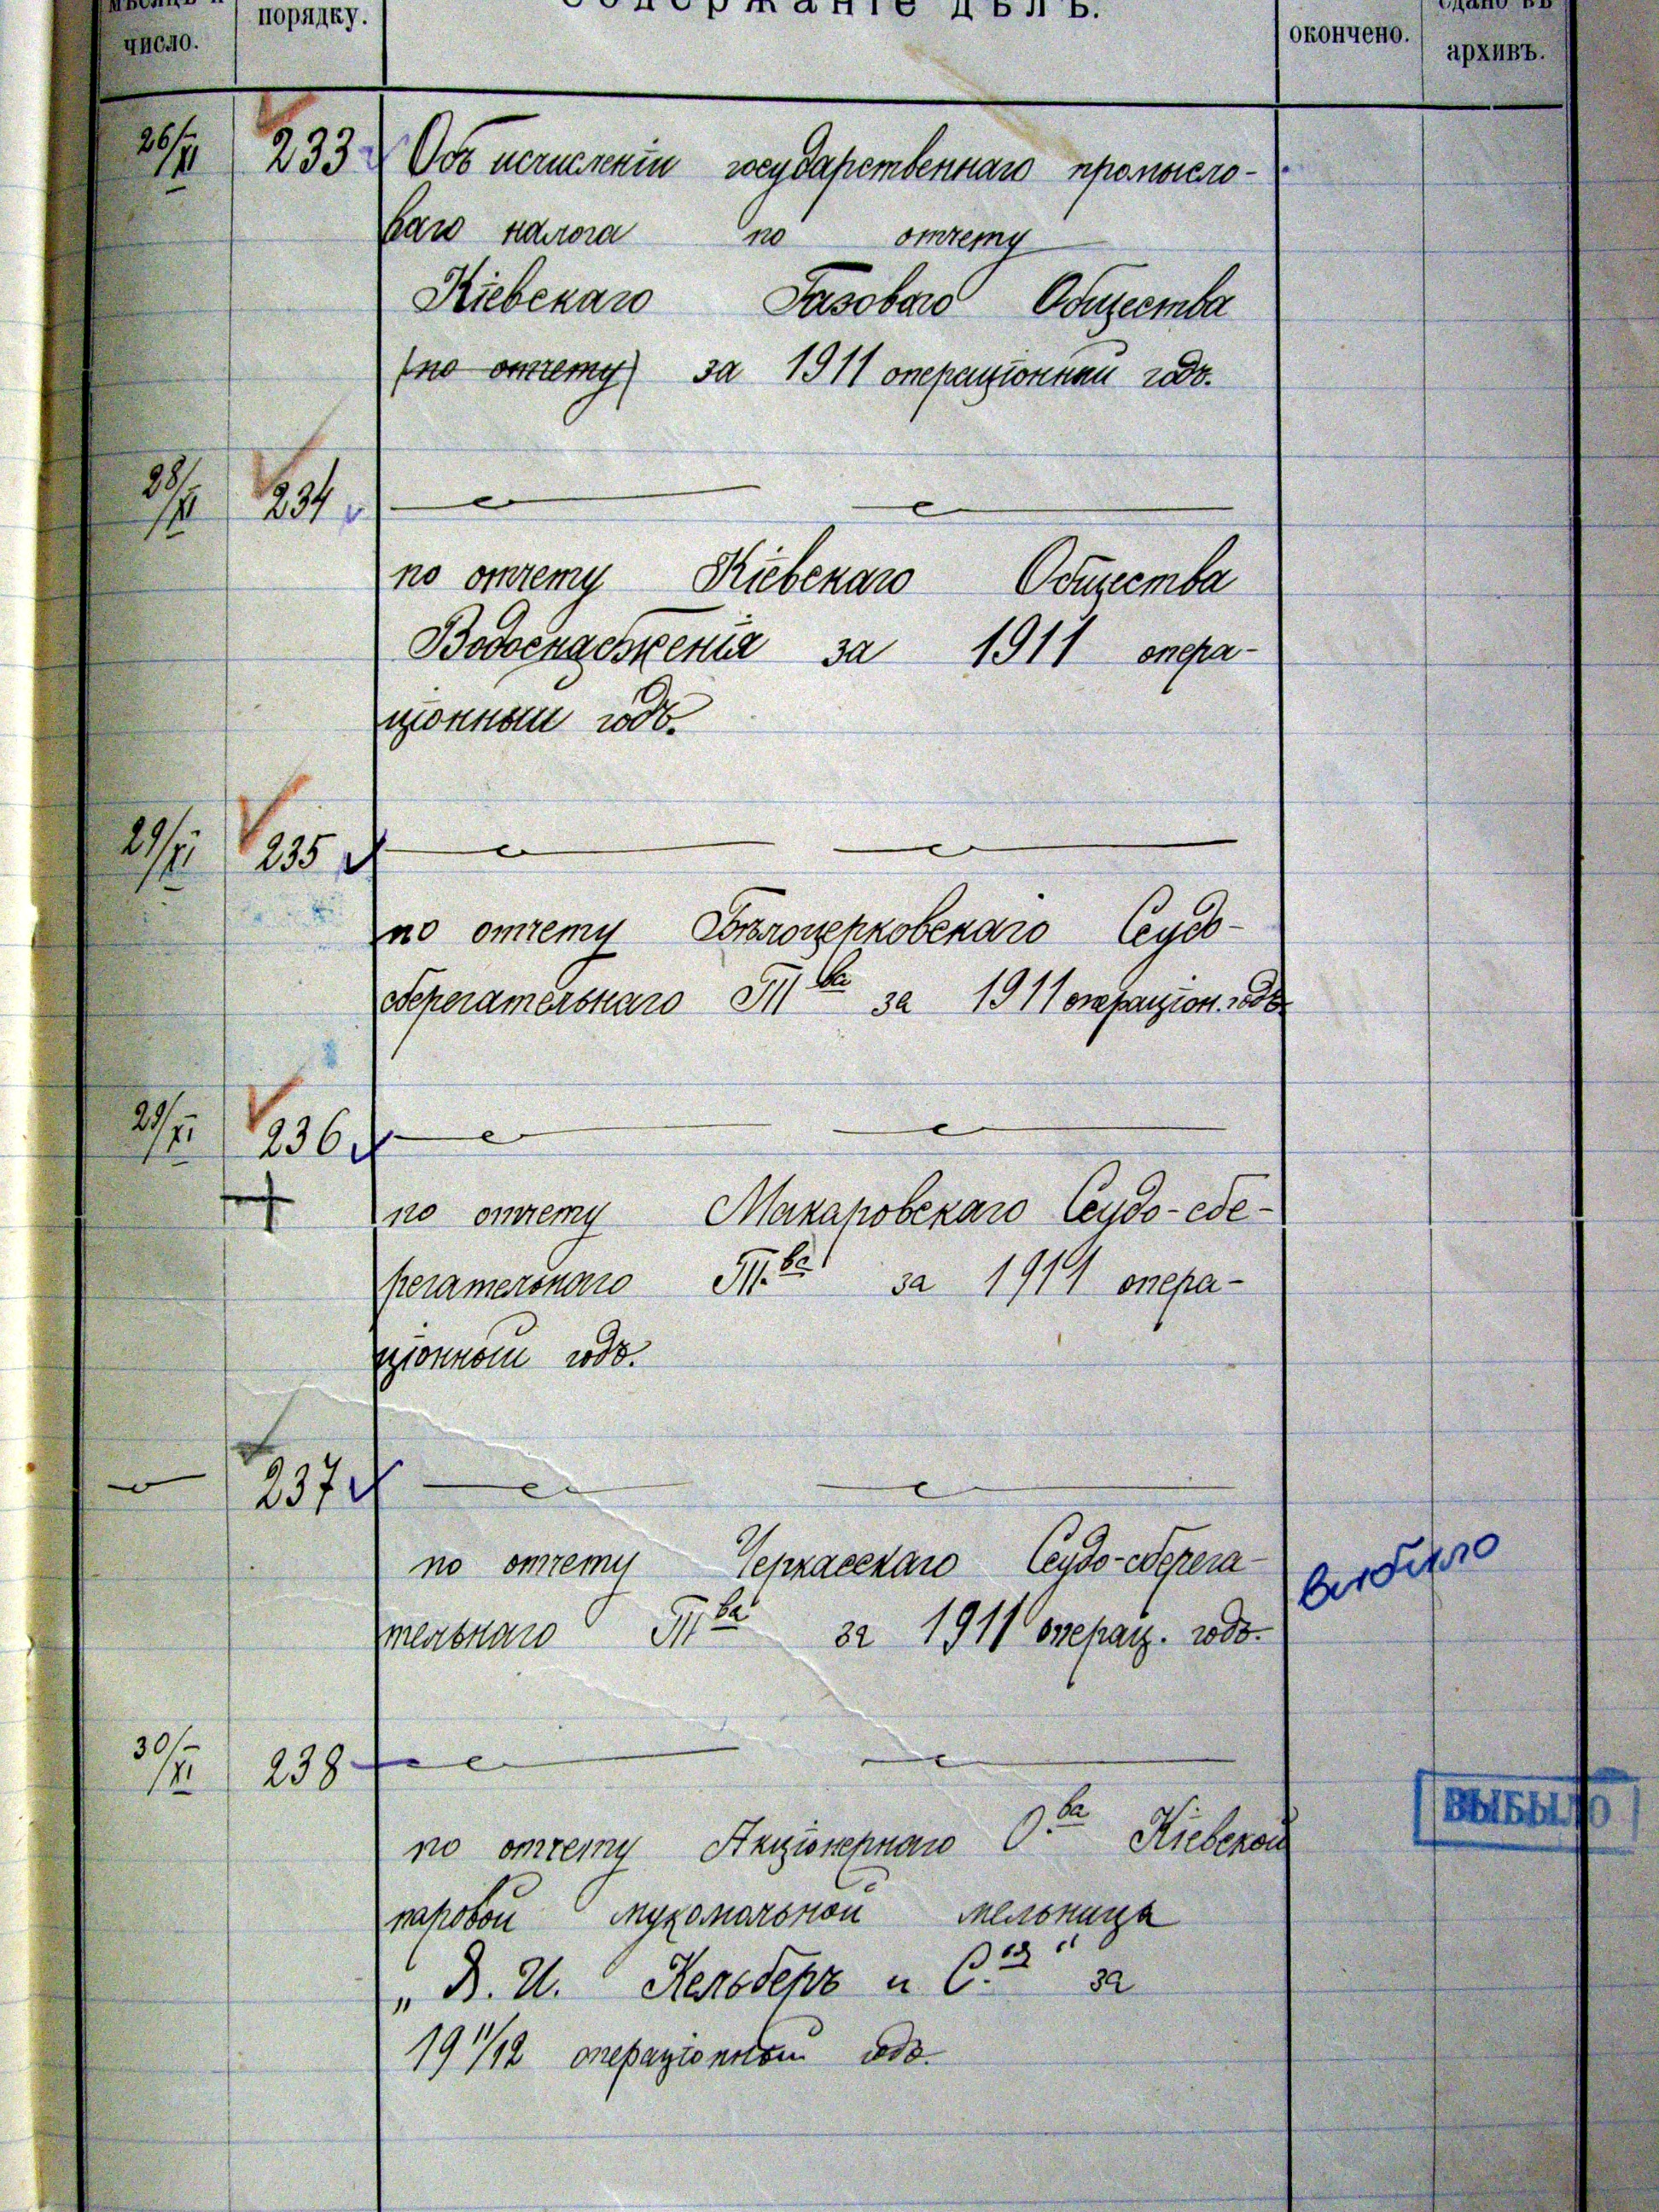 мѣсяцъ и
число.
порядку.
Содержаніе дѣлъ.
окончено.
сдано въ
архивъ.
26/XI 233 Объ исчисленіи государственнаго промысло-
ваго налога по отчету
Кіевскаго Газоваго Общества
(по отчету) за 1911 операціонный годъ.
28/XI 234
по отчету Кіевскаго Общества
Водоснабженія за 1911 опера-
ціонный годъ.
29/XI 235
по отчету Бѣлоцерковскаго Ссудо-
сберегательнаго Т-ва за 1911 операціон. годъ
29/XI 236
по отчету Макаровскаго Ссудо-сбе-
регательнаго Т-ва за 1911 опера-
ціонный годъ.
237
по отчету Черкасскаго Ссудо-сберега-
тельнаго Т-ва за 1911 операц. годъ.
выбыло
30/XI 238
по отчету Акціонернаго О.ва Кіевской
ВЫБЫЛО
паровой мукомольной мельницы
„ И. Кельберъ и С.ія" за
19 11/12 операціонный годъ.